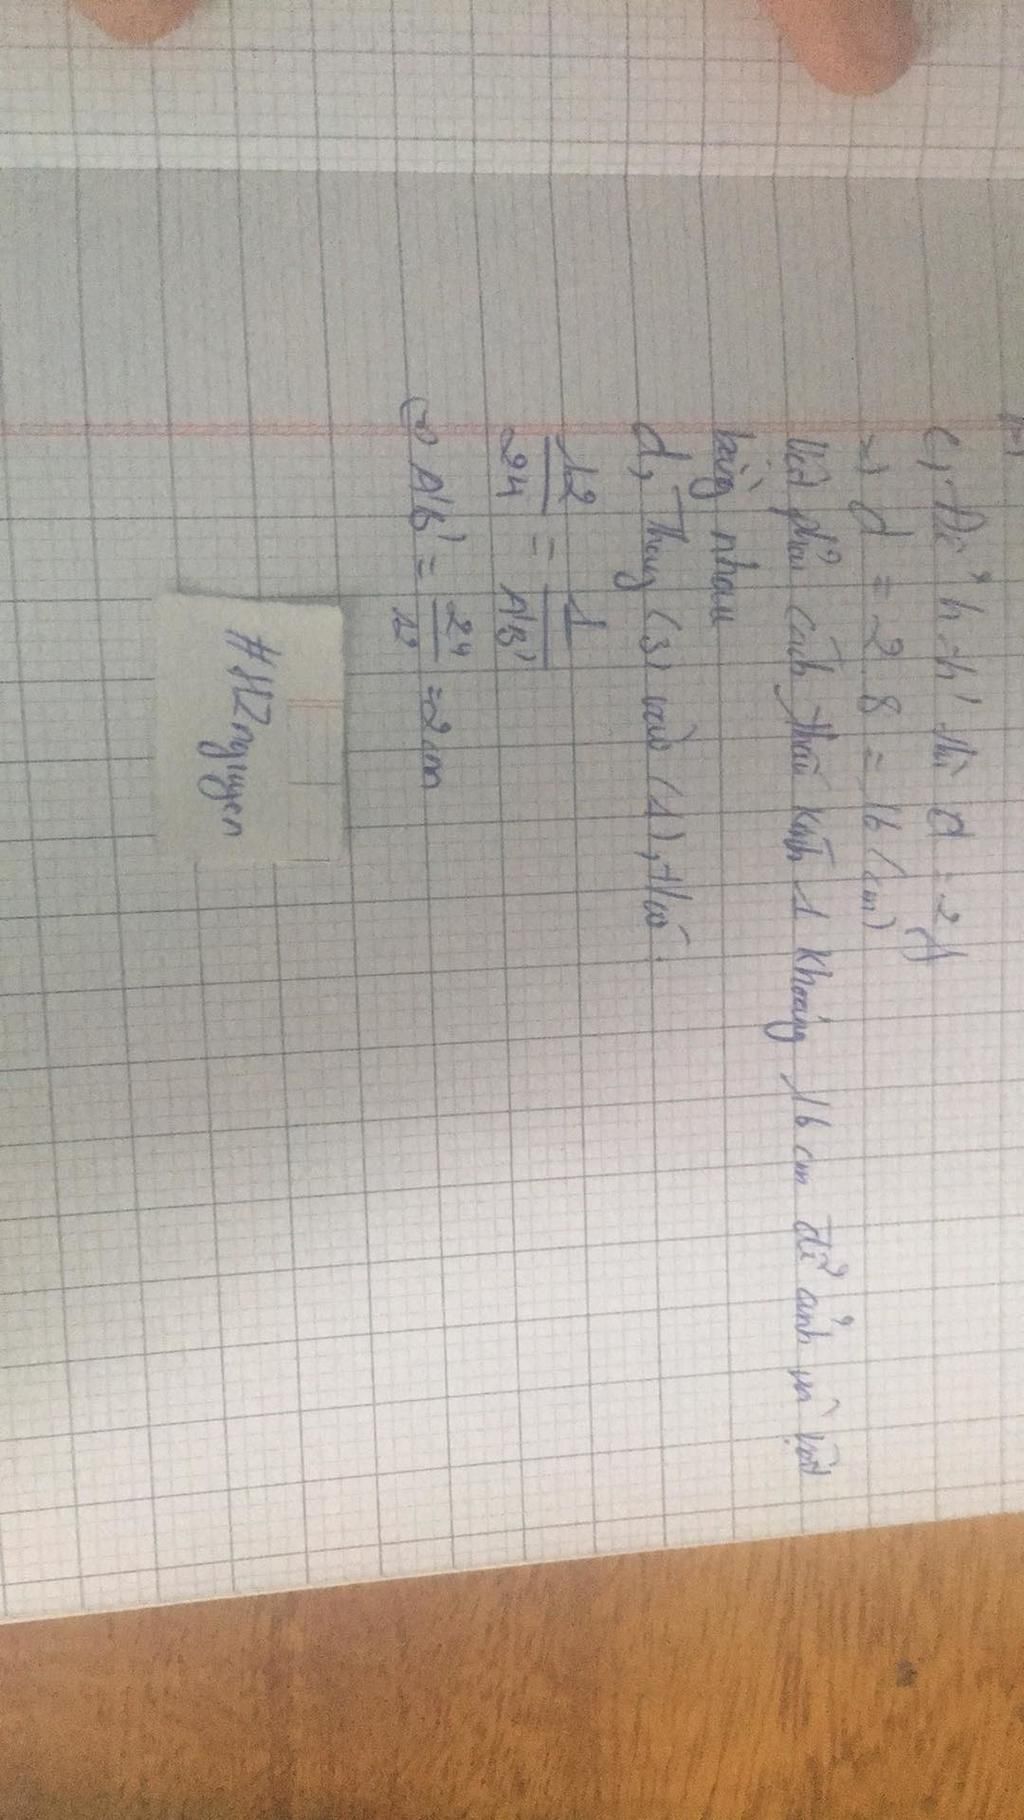 c, Để h = h' thì d = 2f
=> d = 2.8 = 16 (cm)
Vật phải cách thấu kính 1 khoảng 16 cm để ảnh và vật
bằng nhau
d, Thay (3) vào (1), ta có:
12/24 = 1/A'B'
<=> A'B' = 24/12 = 2 cm
#HZnguyen